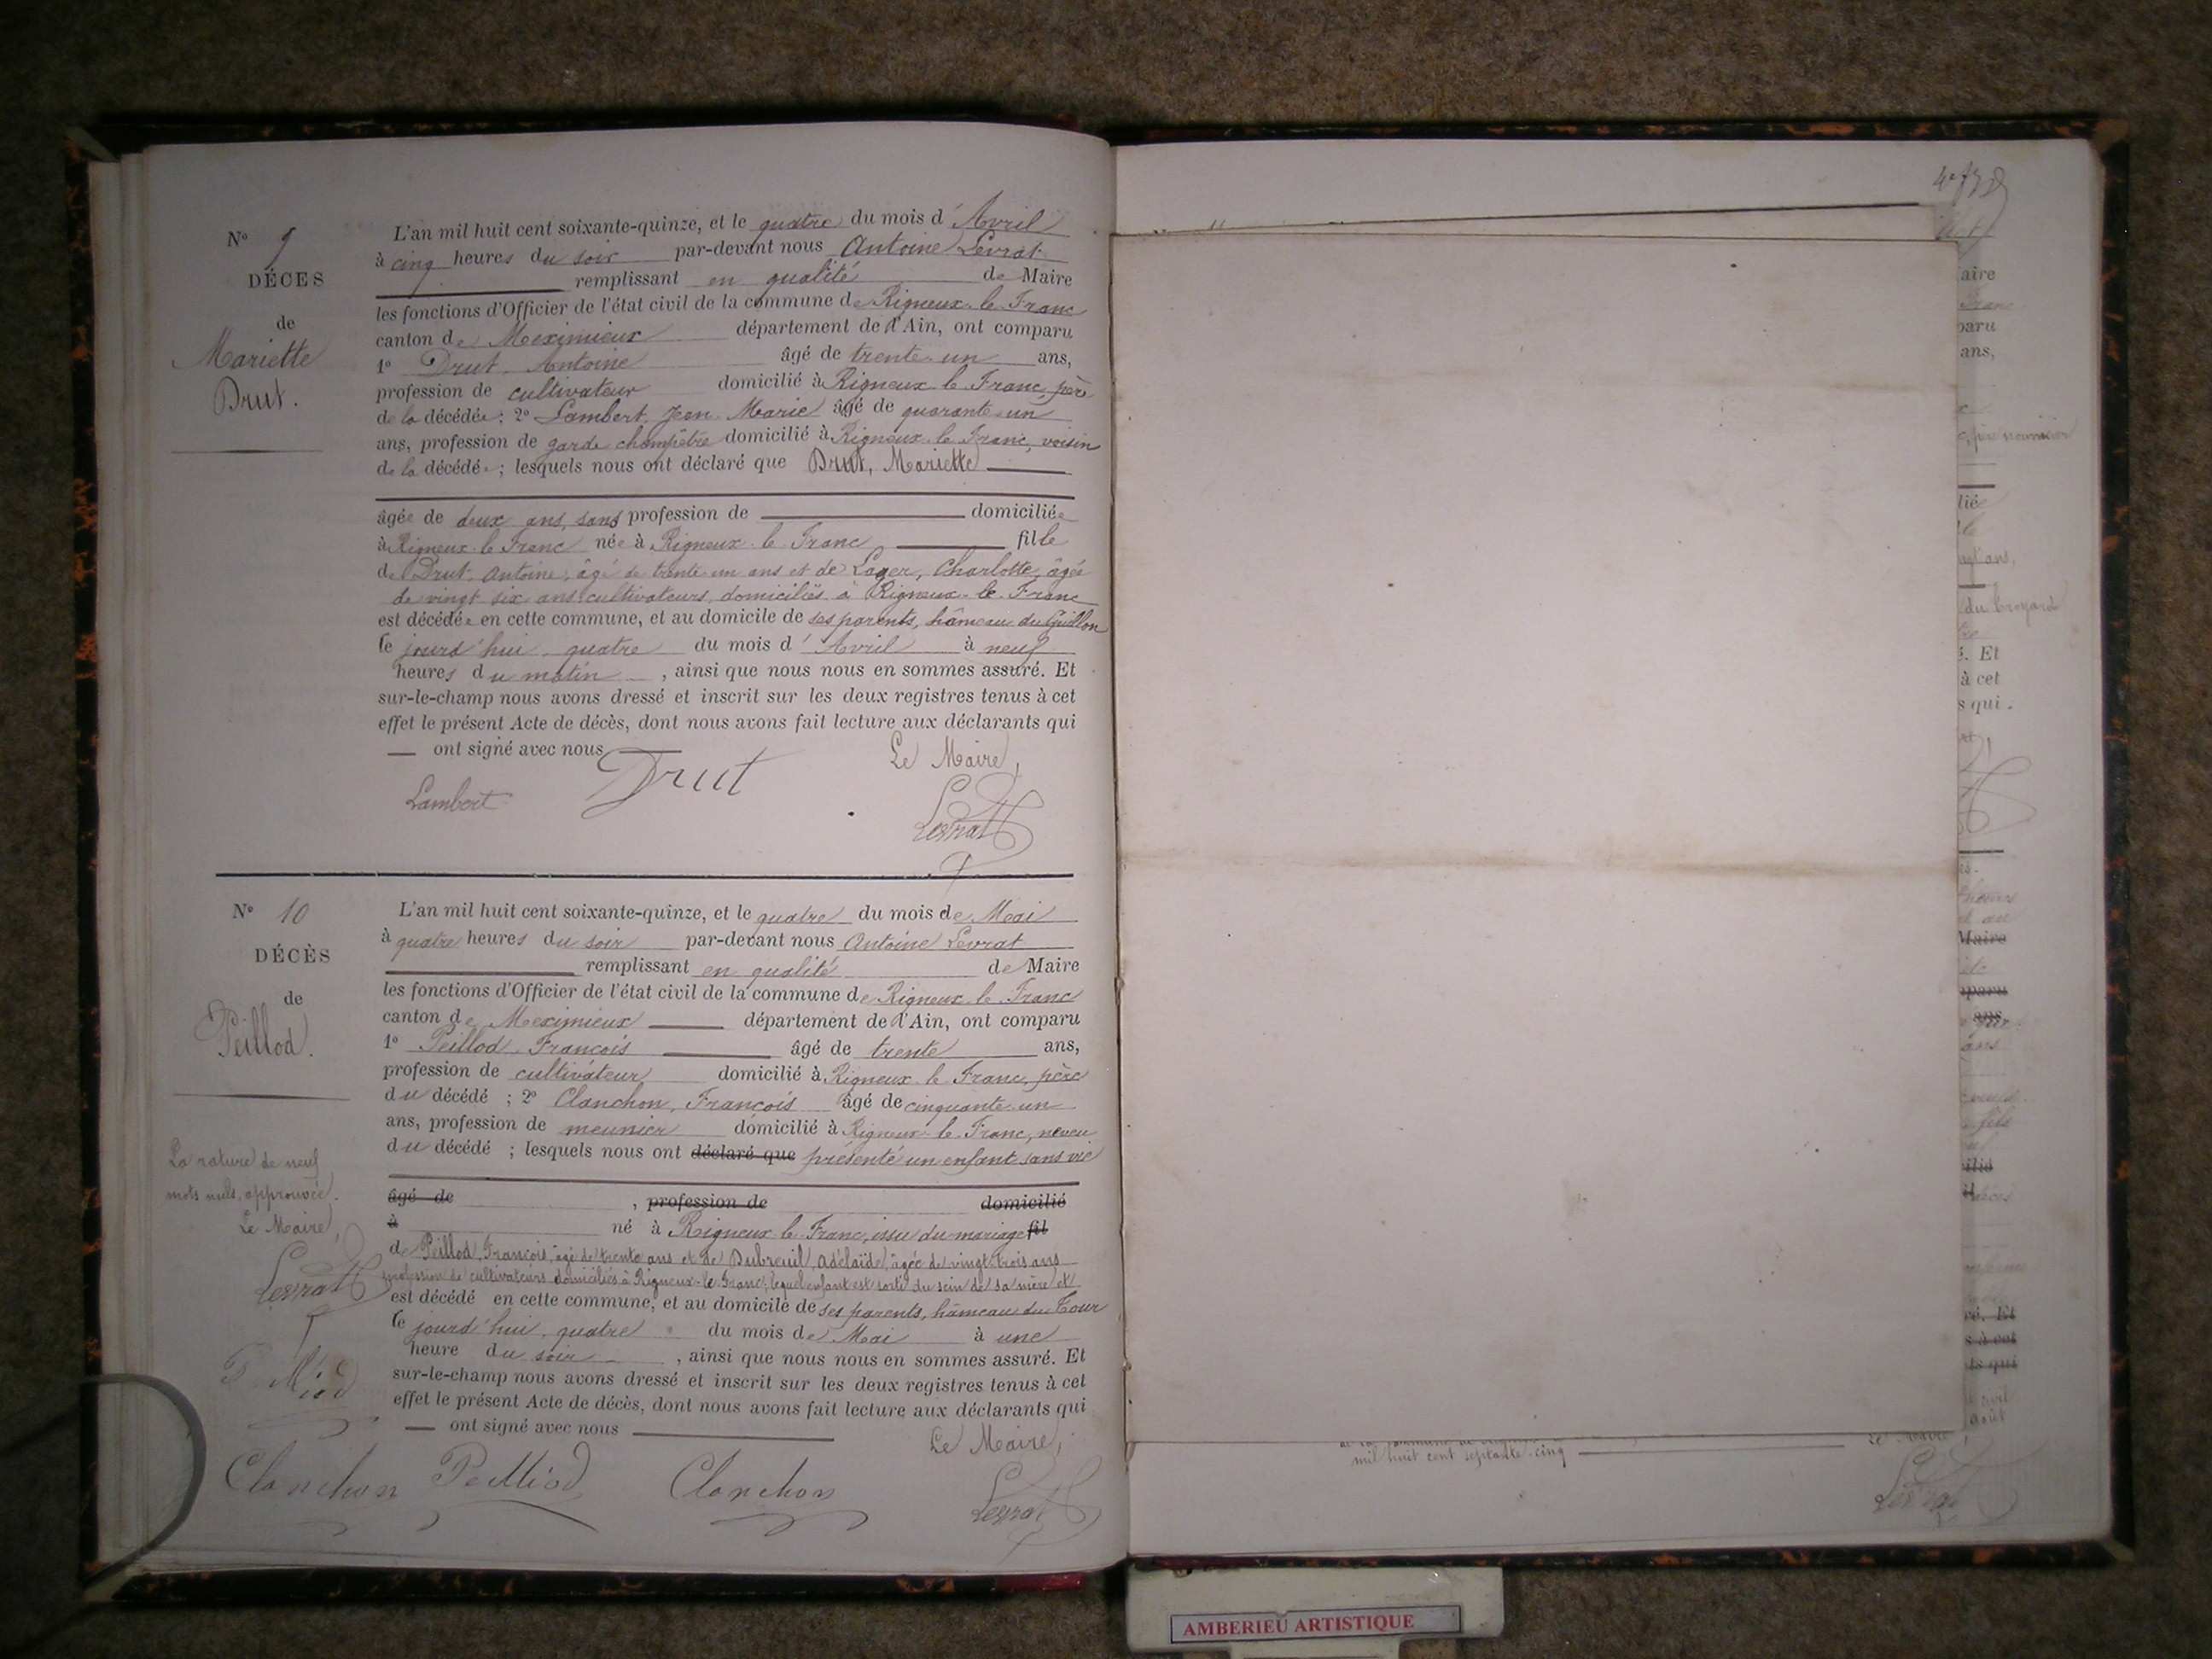 N° 9
DÉCES
de
Mariette
Drut.
L'an mil huit cent soixante-quinze, et le quatre du mois d'Avril
à cinq heures du soir par-devant nous Antoine Levrat
remplissant en qualité de Maire
les fonctions d'Officier de l'état civil de la commune de Rigneux-le-Franc
canton de Meximieux département de l'Ain, ont comparu
1° Drut Antoine âgé de trente-un ans,
profession de cultivateur domicilié à Rigneux-le-Franc, père
de la décédée; 2° Lambert, Jean-Marie âgé de quarante-un
ans, profession de garde champêtre domicilié à Rigneux-le-Franc, voisin
de la décédée; lesquels nous ont déclaré que Drut, Mariette
âgée de deux ans, sans profession de domiciliée
à Rigneux-le-Franc née à Rigneux-le-Franc, fille
de Drut Antoine, âgé de trente un ans et de Loyer, Charlotte, âgée
de vingt six ans cultivateurs, domiciliés à Rigneux-le-Franc
est décédée en cette commune, et au domicile de ses parents, hâmeau du Guillon
le jourd'hui quatre du mois d'Avril à neuf
heures du matin, ainsi que nous nous en sommes assuré. Et
sur-le-champ nous avons dressé et inscrit sur les deux registres tenus à cet
effet le présent Acte de décès, dont nous avons fait lecture aux déclarants qui
— ont signé avec nous
Le Maire,
Lambert Drut Levrat
N° 10
DÉCÈS
de
Peillod.
L'an mil huit cent soixante-quinze, et le quatre du mois de Mai
à quatre heures du soir par-devant nous Antoine Levrat
remplissant en qualité de Maire
les fonctions d'Officier de l'état civil de la commune de Rigneux-le-Franc
canton de Meximieux département de l'Ain, ont comparu
1° Peillod, François âgé de trente ans,
profession de cultivateur domicilié à Rigneux-le-Franc, père
du décédé; 2° Clanchon, François âgé de cinquante-un
ans, profession de meunier domicilié à Rigneux-le-Franc, neveu
du décédé; lesquels nous ont déclaré que présenté un enfant sans vie
âgé de , profession de domicilié
à né à Rigneux-le-Franc, issu du mariage fil
de Peillod, François, âgé de trente ans et de Dubreuil, Adélaïde, âgée de vingt-trois ans
profession de cultivateurs domiciliés à Rigneux-le-Franc, lequel enfant est sorti du sein de sa mère et
est décédé en cette commune, et au domicile de ses parents, hâmeau du Tour
le jourd'hui quatre du mois de Mai à une
heure du soir, ainsi que nous nous en sommes assuré. Et
sur-le-champ nous avons dressé et inscrit sur les deux registres tenus à cet
effet le présent Acte de décès, dont nous avons fait lecture aux déclarants qui
— ont signé avec nous
Le Maire,
La rature de neuf
mots nuls, approuvée.
Le Maire,
Levrat
Clanchon Peilliod Clanchon Levrat
aire
paru
ans,
père nourricier
lié
ans,
du Croyard
é. Et
à cet
s qui.
Maire
mparu
ans
fils
cilié
ré. Et
s à cet
ts qui
avril
août
Le Maire,
mil huit cent septante-cinq
Levrat
AMBERIEU ARTISTIQUE